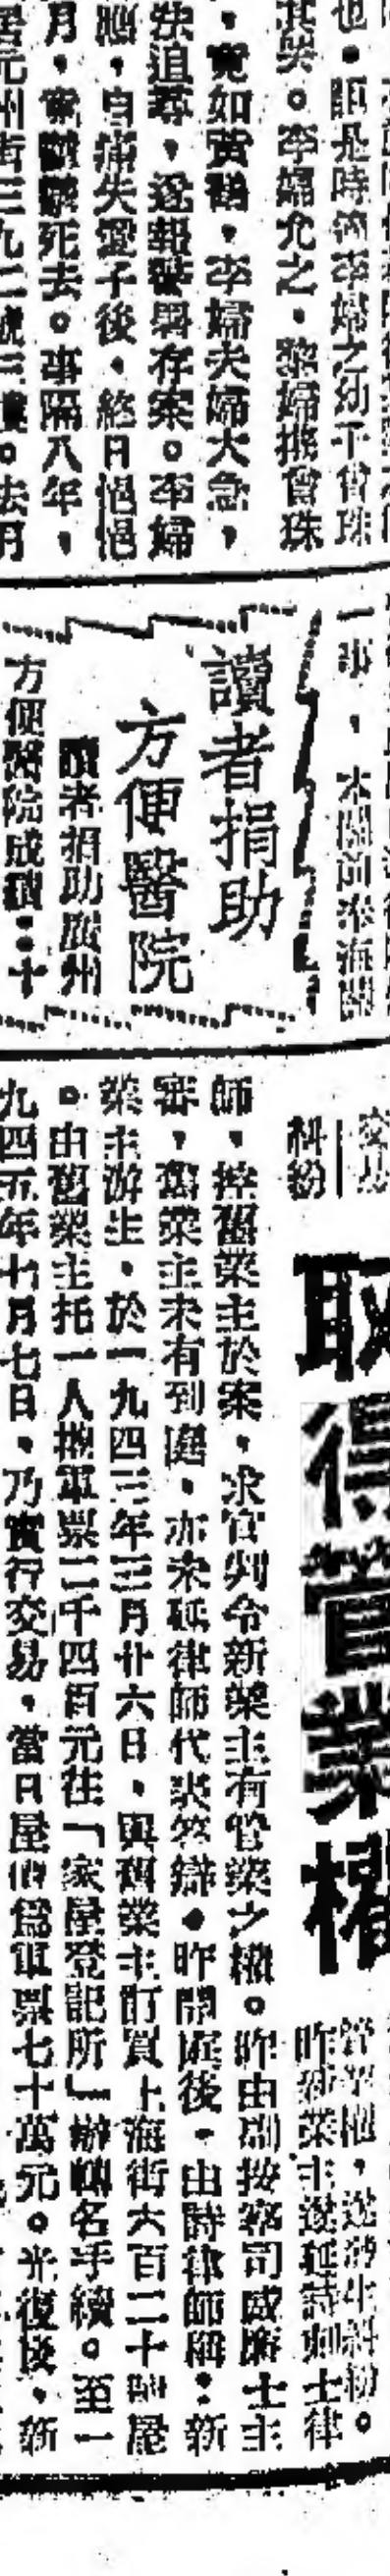 也。詎是時適李婦之幼子曾珠
李婦允之。黎婦携曾珠
，竟如黃鶴，李婦夫婦大急，
追尋，遂報警署存案。李婦
，自痛失愛子後，終日悒悒
月，竟鬱鬱死去。事隔八年，
居元州街三九二號三樓。去月
一事，本關前奉海關
讀者捐助
方便醫院
讀者捐助廣州
方便醫院成績：十
糾紛
取得管業權
管業權，遂發生糾紛。
昨新業主遂延詩刺士律
師，控舊業主於案，求官判令新業主有管業之權。昨由副按察司威廉士主
審，舊業主未有到庭，亦未延律師代表答辯。昨開庭後，由詩律師稱：新
業主游生，於一九四三年三月廿六日，與舊業主訂買上海街六百二十號屋
。由舊業主托一人携軍票二千四百元往「家屋登記所」辦轉名手續。至一
九四五年七月七日，乃實行交易，當日屋價爲軍票七十萬元。光復後，新